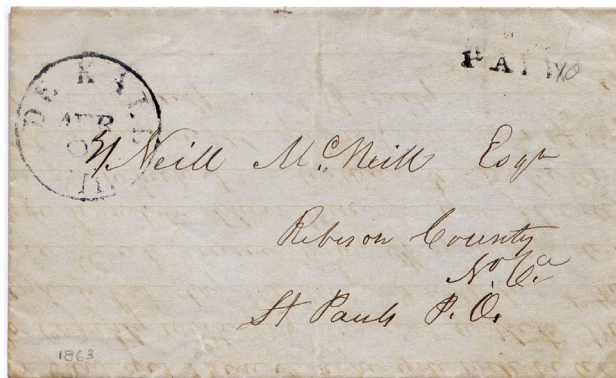 PAID
DE KALB
APR
Neill McNeill Esqr
Robeson County
No. Ca
St Pauls P. O.
1863